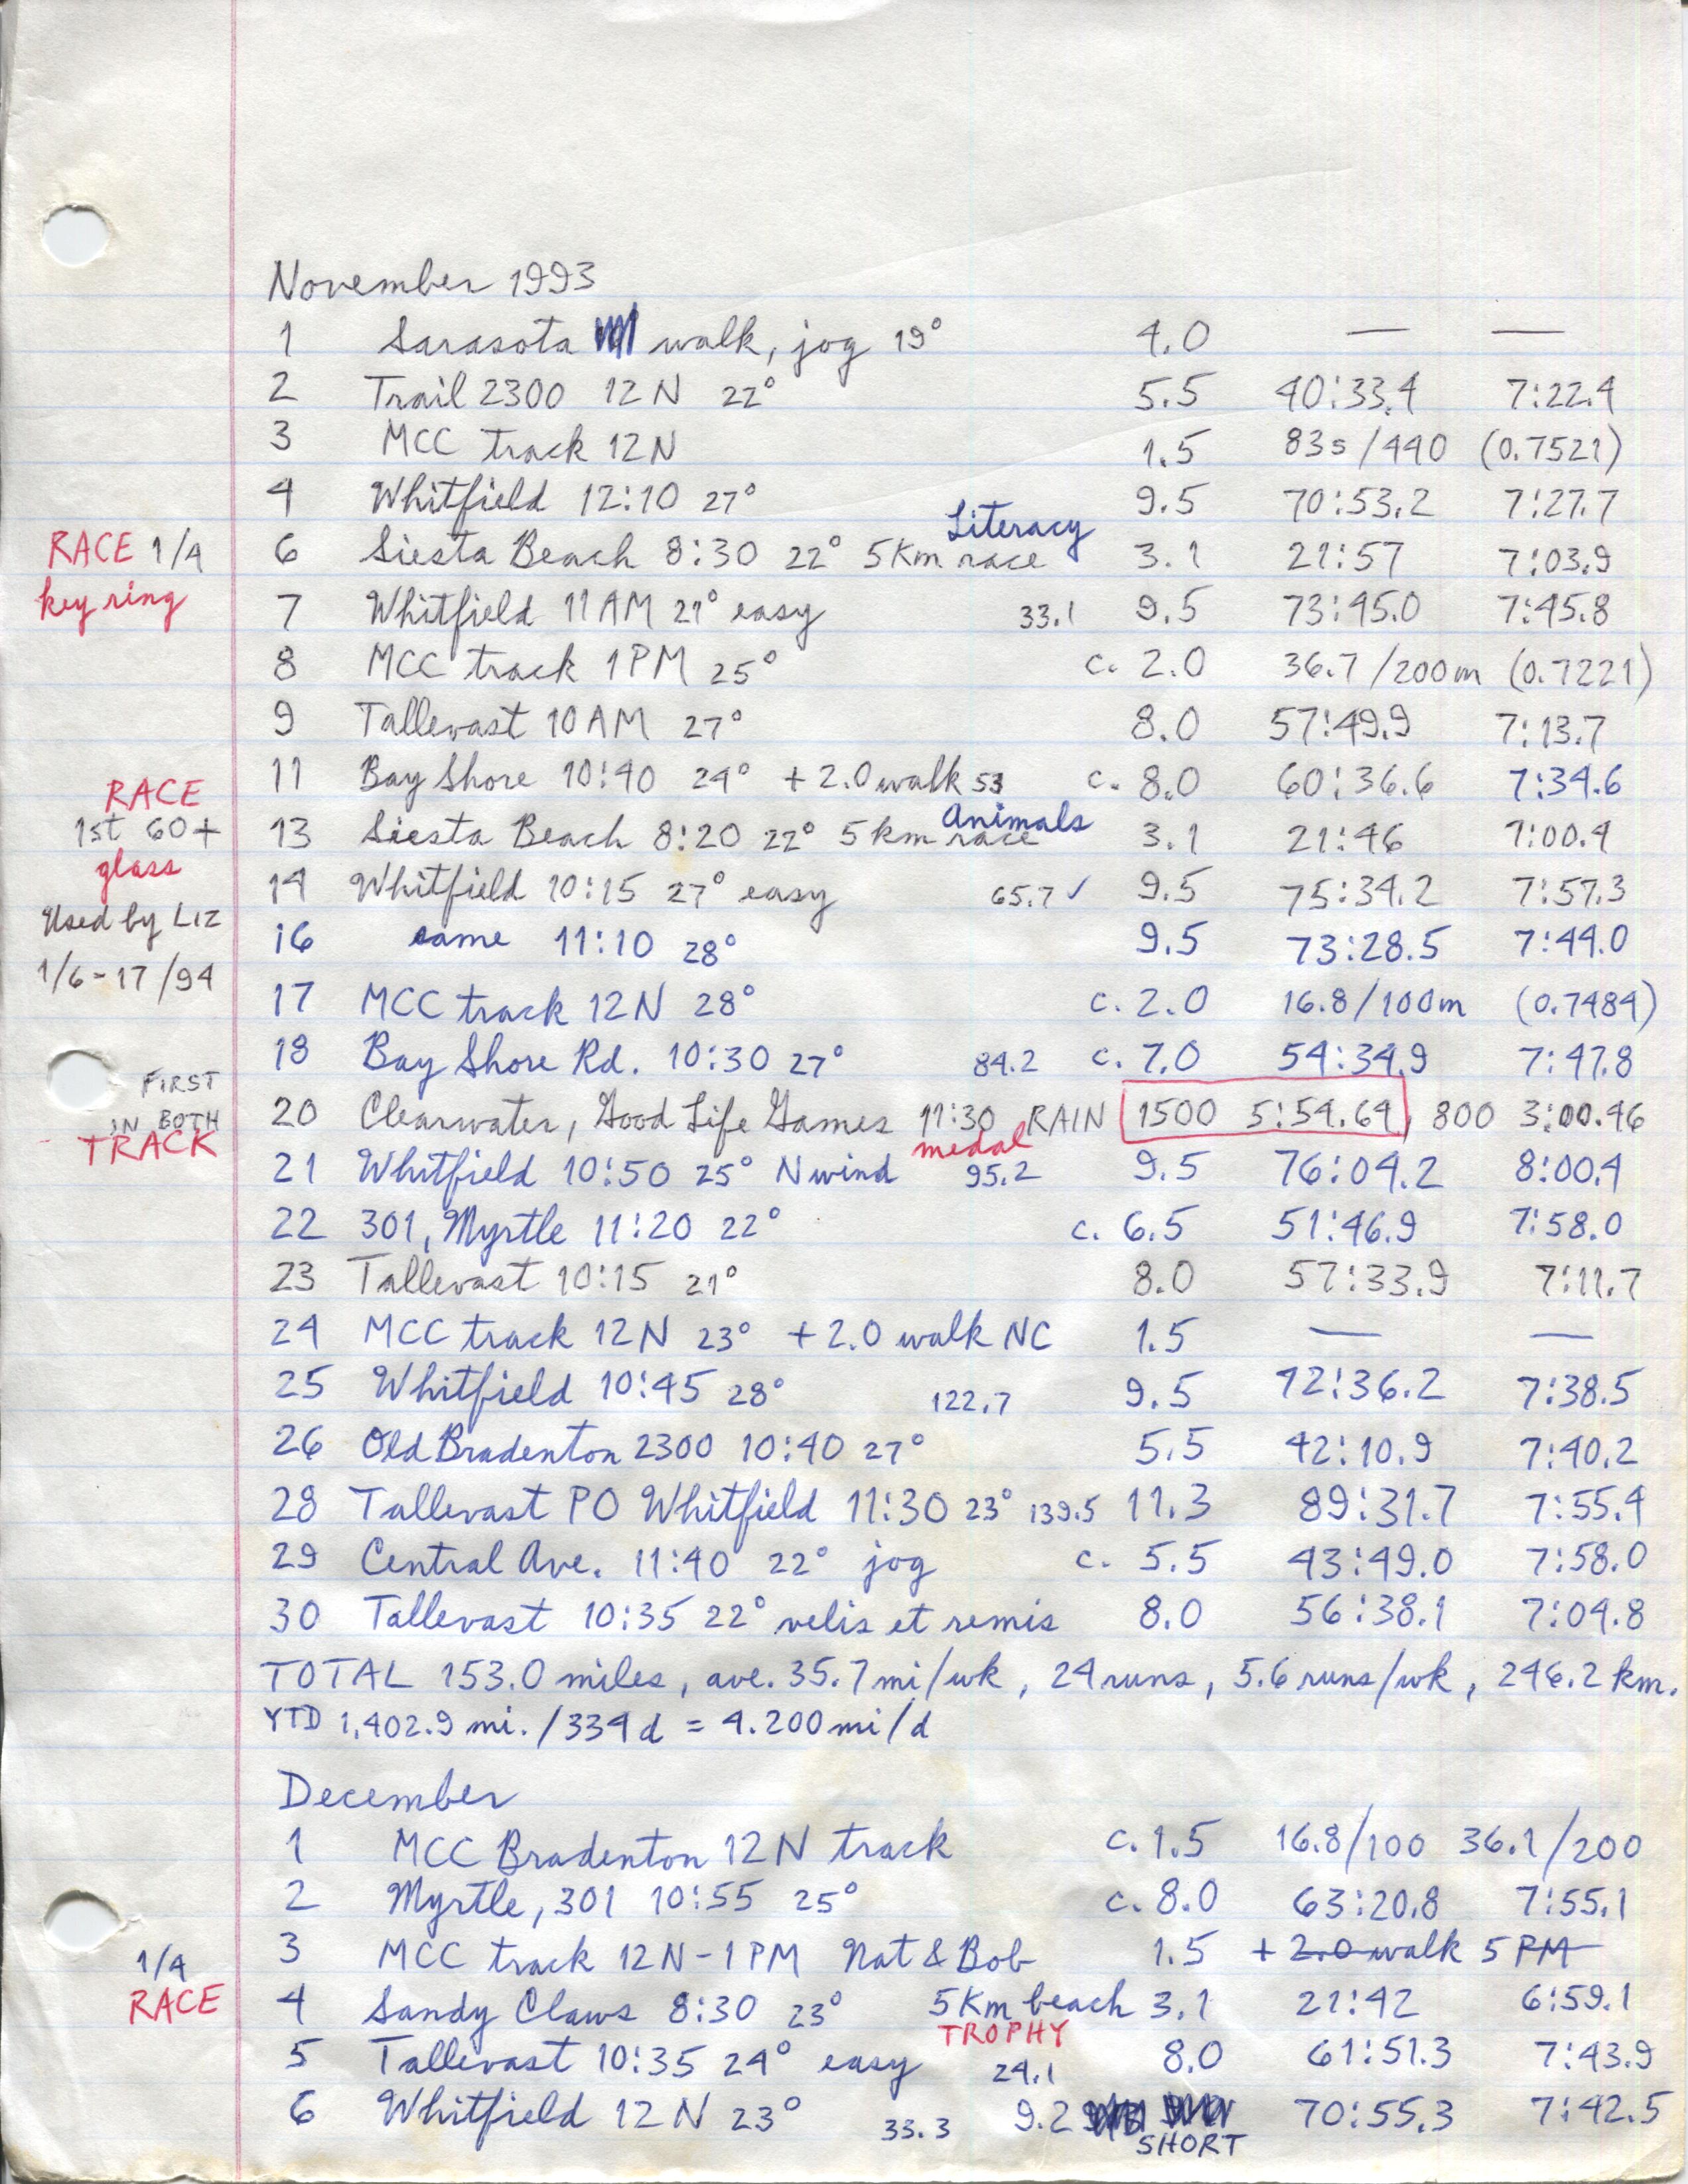 November 1993
1 Sarasota walk, jog 19° 4.0 — —
2 Trail 2300 12N 22° 5.5 40:33.4 7:22.4
3 MCC track 12N 1.5 83s/440 (0.7521)
4 Whitfield 12:10 27° 9.5 70:53.2 7:27.7
Literacy
RACE 1/4 6 Siesta Beach 8:30 22° 5Km race 3.1 21:57 7:03.9
key ring 7 Whitfield 11AM 21° easy 33.1 9.5 73:45.0 7:45.8
8 MCC track 1PM 25° c. 2.0 36.7/200m (0.7221)
9 Tallevast 10AM 27° 8.0 57:49.9 7:13.7
RACE 11 Bay Shore 10:40 24° +2.0 walk 53 c. 8.0 60:36.6 7:34.6
Animals
1st 60+ 13 Siesta Beach 8:20 22° 5km race 3.1 21:46 7:00.4
glass 14 Whitfield 10:15 27° easy 65.7✓ 9.5 75:34.2 7:57.3
Used by LIZ 16 same 11:10 28° 9.5 73:28.5 7:44.0
1/6-17/94 17 MCC track 12N 28° c. 2.0 16.8/100m (0.7484)
18 Bay Shore Rd. 10:30 27° 84.2 c. 7.0 54:34.9 7:47.8
FIRST
IN BOTH 20 Clearwater, Good Life Games 11:30 RAIN 1500 5:54.64, 800 3:00.46
TRACK medal
21 Whitfield 10:50 25° N wind 95.2 9.5 76:04.2 8:00.4
22 301, Myrtle 11:20 22° c. 6.5 51:46.9 7:58.0
23 Tallevast 10:15 21° 8.0 57:33.9 7:11.7
24 MCC track 12N 23° +2.0 walk NC 1.5 — —
25 Whitfield 10:45 28° 122.7 9.5 72:36.2 7:38.5
26 Old Bradenton 2300 10:40 27° 5.5 42:10.9 7:40.2
28 Tallevast PO Whitfield 11:30 23° 139.5 11.3 89:31.7 7:55.4
29 Central Ave. 11:40 22° jog c. 5.5 43:49.0 7:58.0
30 Tallevast 10:35 22° velis et remis 8.0 56:38.1 7:04.8
TOTAL 153.0 miles, ave. 35.7 mi/wk, 24 runs, 5.6 runs/wk, 246.2 km.
YTD 1,402.9 mi./334d = 4.200 mi/d
December
1 MCC Bradenton 12N track c. 1.5 16.8/100 36.1/200
2 Myrtle, 301 10:55 25° c. 8.0 63:20.8 7:55.1
1/4 3 MCC track 12N-1PM Nat & Bob 1.5 + 2.0 walk 5 PM
RACE 4 Sandy Claws 8:30 23° 5Km beach 3.1 21:42 6:59.1
TROPHY
5 Tallevast 10:35 24° easy 24.1 8.0 61:51.3 7:43.9
6 Whitfield 12N 23° 33.3 9.2 70:55.3 7:42.5
SHORT